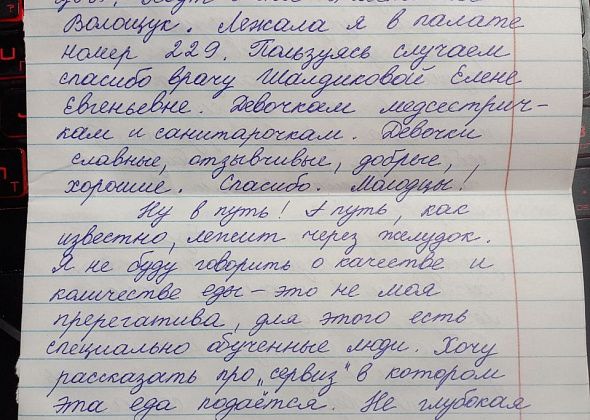 Волощук. Лежала я в палате
номер 229. Пользуясь случаем
спасибо врачу Шалдиковой Елене
Евгеньевне. Девочкам медсестрич-
кам и санитарочкам. Девочки
славные, отзывчивые, добрые,
хорошие. Спасибо. Молодцы!
Ну в путь! А путь, как
известно, лежит через желудок.
Я не буду говорить о качестве и
количестве еды – это не моя
пререгатива, для этого есть
специально обученные люди. Хочу
рассказать про „сервиз" в котором
эта еда подаётся. Не глубокая